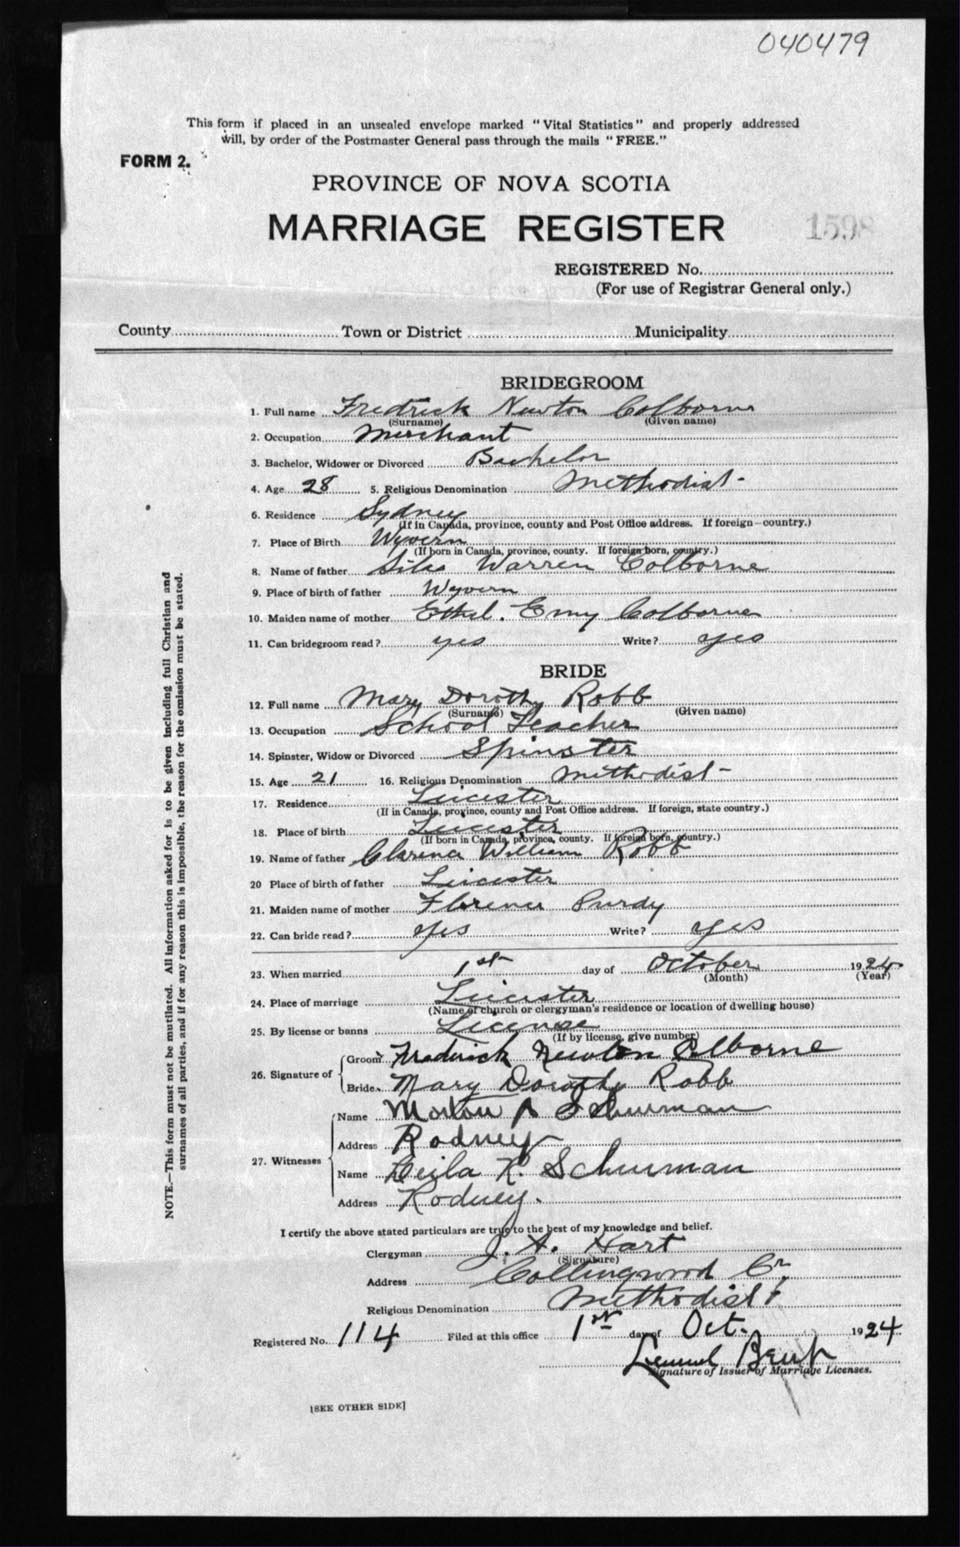 040479
This form if placed in an unsealed envelope marked "Vital Statistics" and properly addressed
will, by order of the Postmaster General pass through the mails "FREE."
FORM 2.
PROVINCE OF NOVA SCOTIA
MARRIAGE REGISTER 1598
REGISTERED No.
(For use of Registrar General only.)
County Town or District Municipality
BRIDEGROOM
1. Full name Fredrick Newton Colborne
(Surname) (Given name)
2. Occupation Merchant
3. Bachelor, Widower or Divorced Bachelor
4. Age 28 5. Religious Denomination Methodist -
6. Residence Sydney
(If in Canada, province, county and Post Office address. If foreign-country.)
7. Place of Birth Wyvern
(If born in Canada, province, county. If foreign born, country.)
8. Name of father Silas Warren Colborne
9. Place of birth of father Wyvern
10. Maiden name of mother Ethel. Emy Colborne
11. Can bridegroom read? yes Write? yes
BRIDE
12. Full name Mary Dorothy Robb
(Surname) (Given name)
13. Occupation School Teacher
14. Spinster, Widow or Divorced Spinster
15. Age 21 16. Religious Denomination Methodist -
17. Residence Leicester
(If in Canada, province, county and Post Office address. If foreign, state country.)
18. Place of birth Leicester
(If born in Canada, province, county. If foreign born, country.)
19. Name of father Clarence William Robb
20 Place of birth of father Leicester
21. Maiden name of mother Florence Purdy
22. Can bride read? yes Write? yes
23. When married 1st day of October 1924
(Month) (Year)
24. Place of marriage Leicester
(Name of church or clergyman's residence or location of dwelling house)
25. By license or banns License
(If by license, give number)
26. Signature of Groom Frederick Newton Colborne
Bride Mary Dorothy Robb
27. Witnesses Name Schurman
Address Rodney
Name Leila K. Schurman
Address Rodney.
I certify the above stated particulars are true to the best of my knowledge and belief.
Clergyman J. A. Hart
(Signature)
Address Collingwood Cr.
Religious Denomination Methodist
Registered No. 114 Filed at this office 1st day of Oct. 1924
Lemuel
Signature of Issuer of Marriage Licenses.
[SEE OTHER SIDE]
NOTE.—This form must not be mutilated. All information asked for is to be given including full Christian and
surnames of all parties, and if for any reason this is impossible, the reason for the omission must be stated.